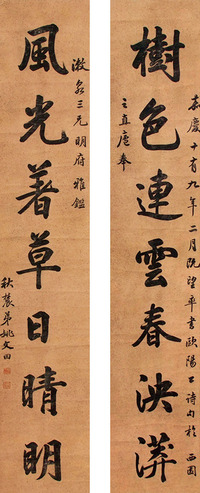 樹色連雲春泱漭
嘉慶十有九年二月既望率書歐陽公詩句於西園
之直廬奉
風光著草日晴明
漱泉三兄明府雅鑑
秋農弟姚文田